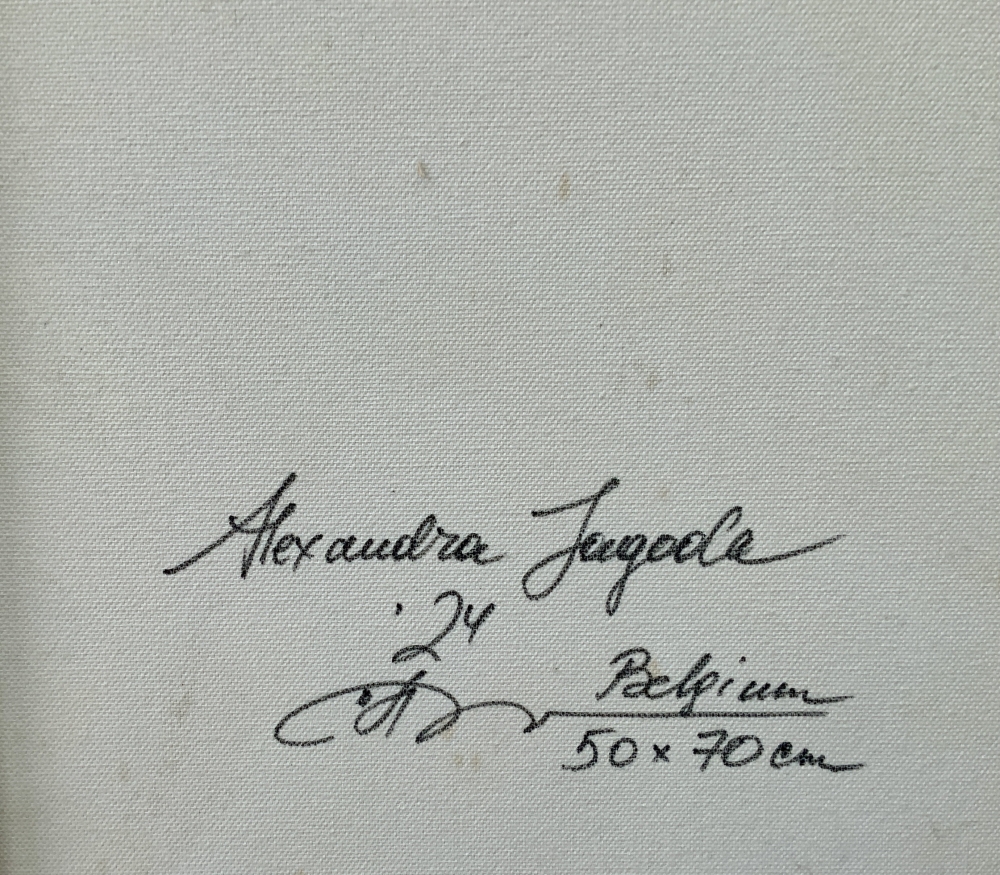 Alexandra Jagoda
'24
Belgium
50 x 70 cm